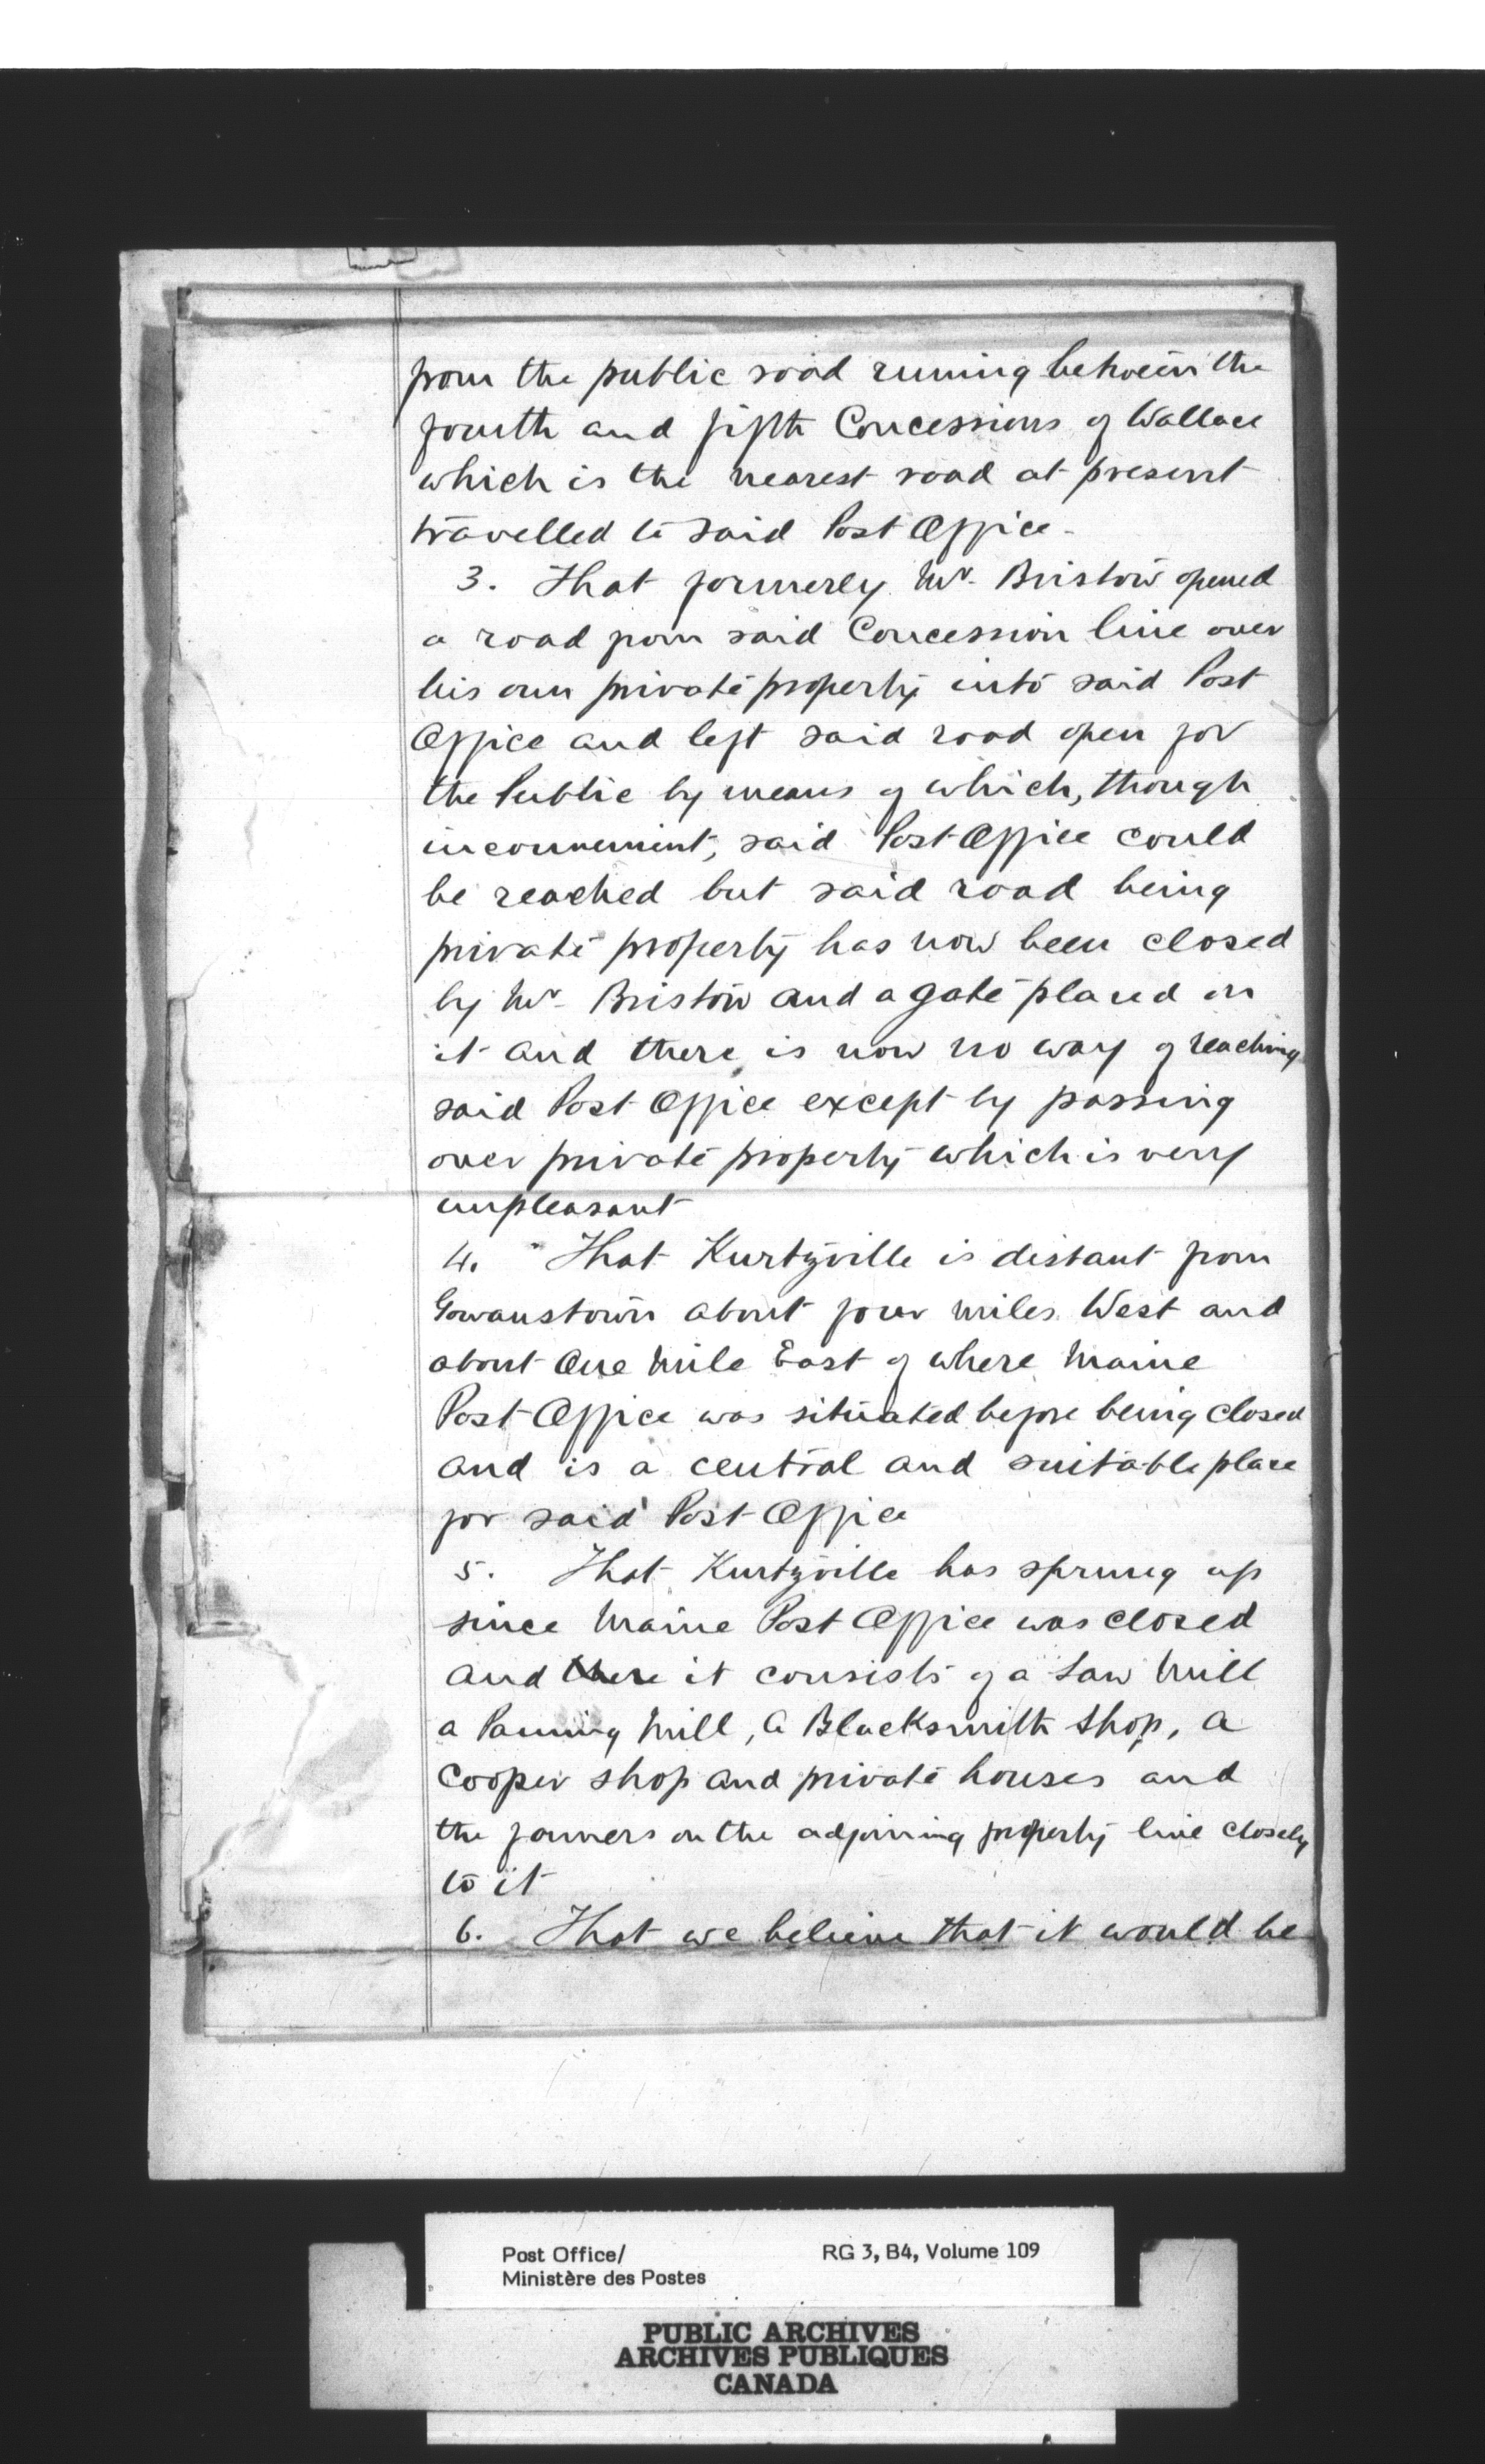 from the public road runing between the
fourth and fifth Concessions of Wallace
which is the nearest road at present
travelled to said Post Office -
3. That formerly Mr. Bristow opened
a road from said Concession line over
his own private property into said Post
Office and left said road open for
the Public by means of which, though
inconvenient, said Post Office could
be reached but said road being
private property has now been closed
by Mr. Bristow and a gate placed on
it and there is now no way of reaching
said Post Office except by passing
over private property which is very
unpleasant
4. That Kurtzville is distant from
Gowanstown about four miles West and
about One Mile East of where Maine
Post Office was situated before being closed
and is a central and suitable place
for said Post Office
5. That Kurtzville has sprung up
since Maine Post Office was closed
and there it consists of a Saw Mill
a Mill, a Blacksmith Shop, a
Cooper shop and private houses and
the farmers on the adjoining property live closely
to it
6. That we believe that it would be
Post Office/ RG 3, B4, Volume 109
Ministère des Postes
PUBLIC ARCHIVES
ARCHIVES PUBLIQUES
CANADA